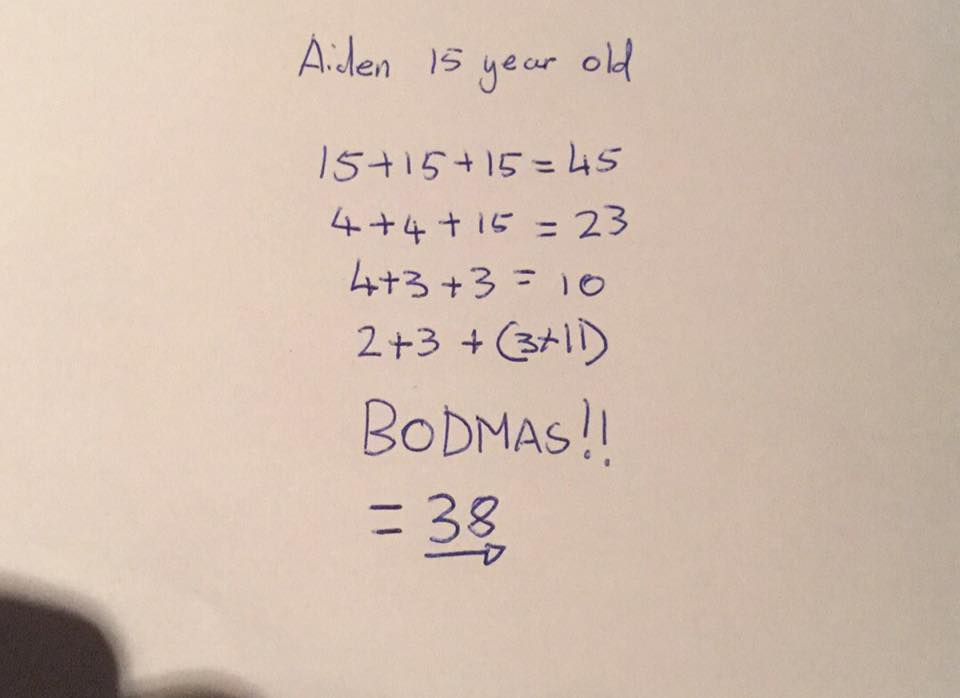 Aiden 15 year old
15+15+15=45
4+4+15=23
4+3+3=10
2+3+(3+11)
BODMAS!!
=38